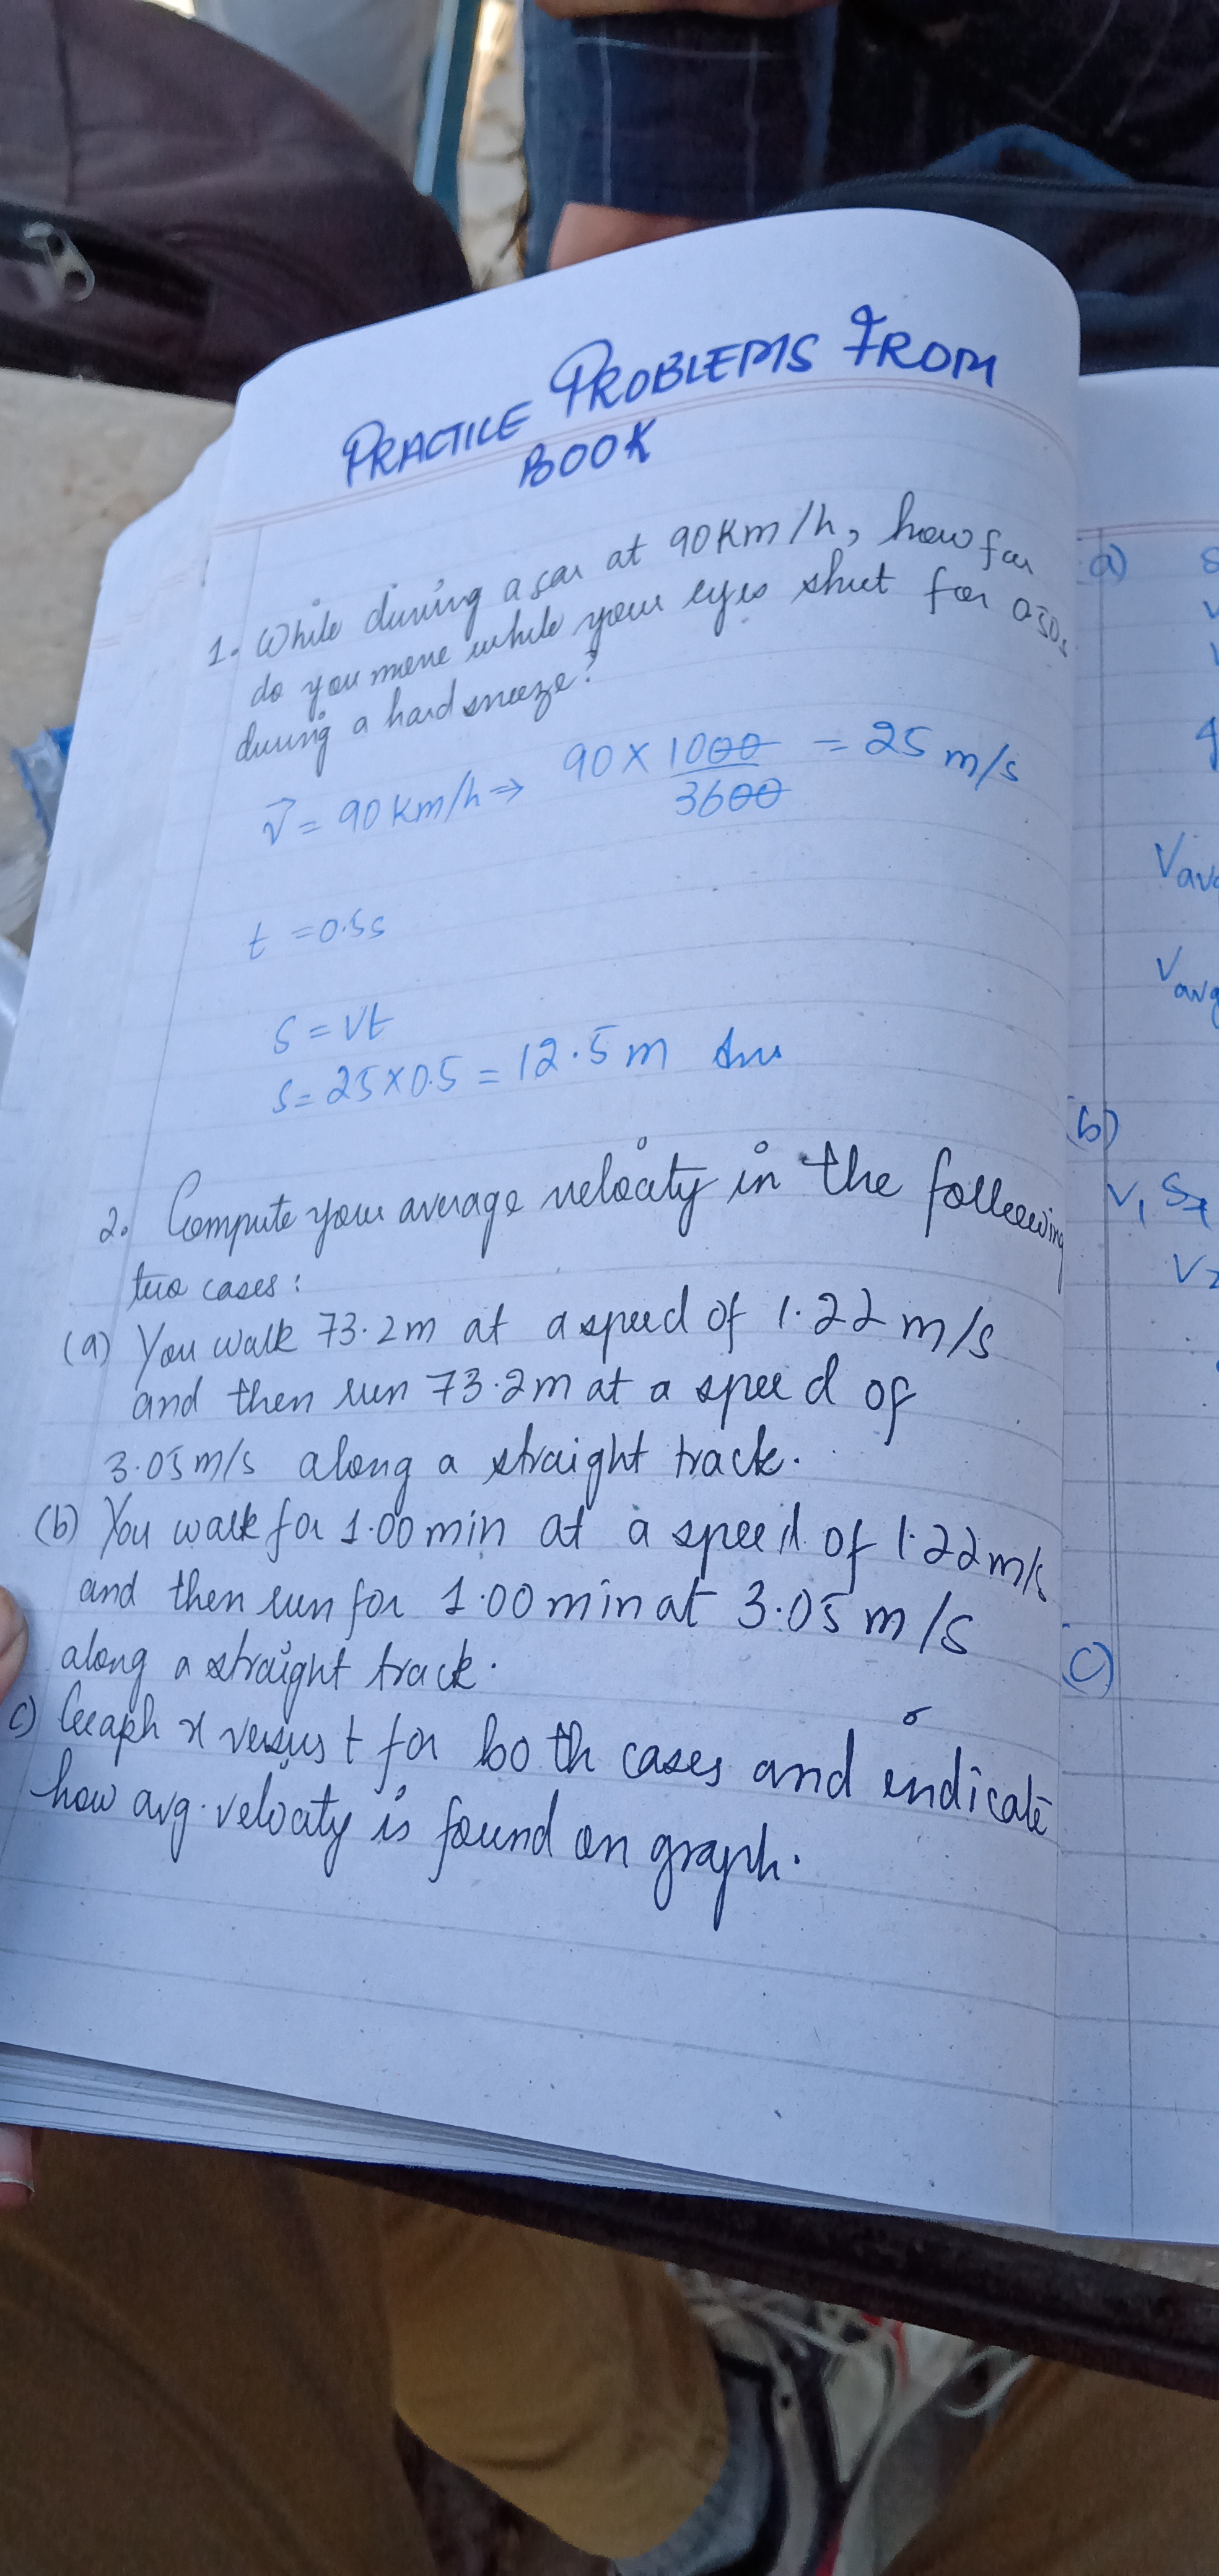 PRACTICE PROBLEMS FROM
BOOK
1. While driving a car at 90 Km/h, how far
do you move while your eyes shut for 0.50s
during a hard sneeze?
v⃗ = 90 Km/h ⇒ 90 × 1000/3600 = 25 m/s
t = 0.5s
S = Vt
S = 25 × 0.5 = 12.5 m Ans
2. Compute your average velocity in the following
two cases:
(a) You walk 73.2m at a speed of 1.22 m/s
and then run 73.2m at a speed of
3.05 m/s along a straight track.
(b) You walk for 1.00 min at a speed of 1.22 m/s
and then run for 1.00 min at 3.05 m/s
along a straight track.
c) Graph x versus t for both cases and indicate
how avg. velocity is found on graph.
a)
Vavg
Vavg
(b)
V₁
V₂
C)